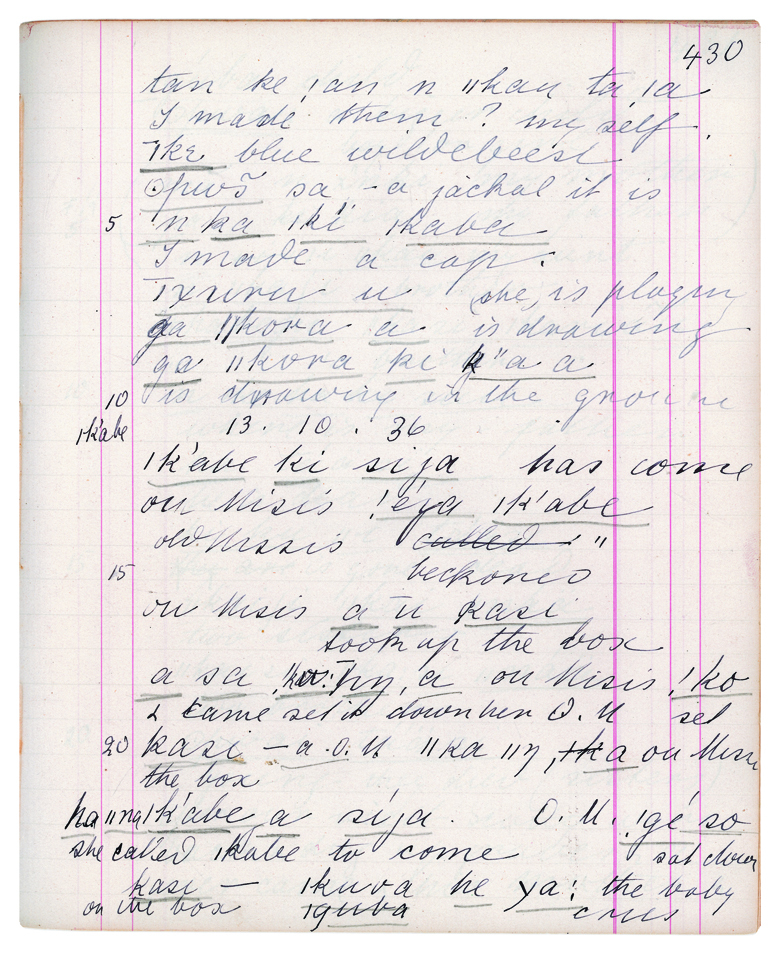 430
tan ke ǃan n ǁkau ta ǀa
I made them ? my self.
ǀkɛ blue wildebeest
ʘpwɔ̃ sa - a jackal it is
5 n ka ǀki ǀkaba
I made a cap.
u (she) is playing
ga ǁkora a is drawing
ga ǁkora ki k"a a
10 is drawing in the
ǀk'abe 13. 10. 36
ǀk'abe ki sija has come
ou Misis ǃeja ǀk'abe
old Missis called "
15 beckoned
ou Misis a u kasi
took up the box
a sa a ou Misis ǃko
& came set it down O. M set
20 kasi - a O. M. ǁka ǁŋ, a ou Misis
the box
ha ǁna ǀk'abe a sija. O. M. ǃgé so
she called ǀkabe to come sat down
kasi - ǀkuva he ya: the baby
on the box ǀguba cries